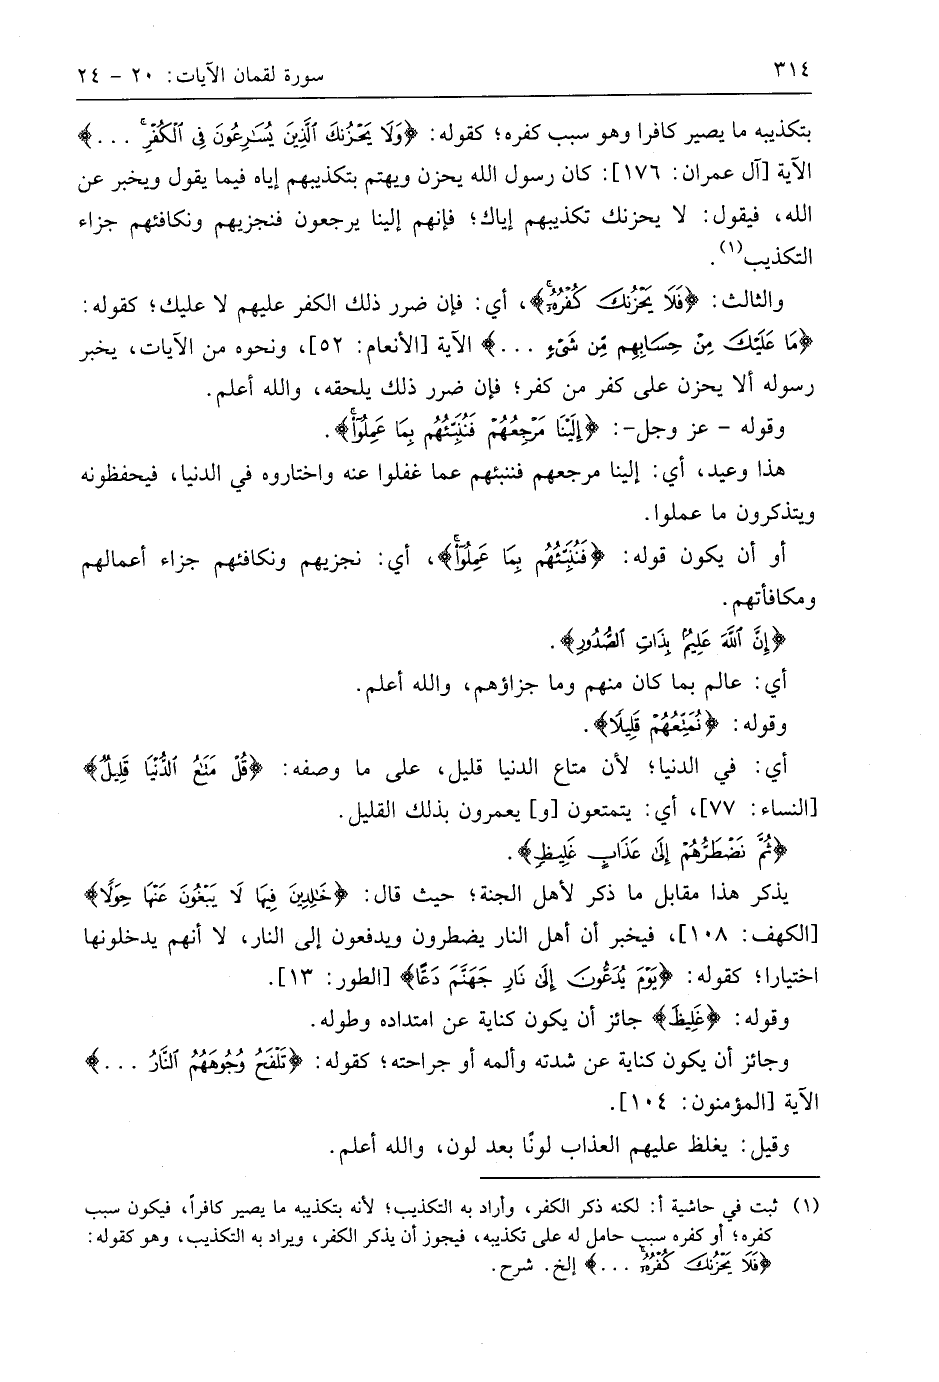 ٣١٤
سورة لقمان الآيات: ٢٠ - ٢٤
بتكذيبه ما يصير كافرا وهو سبب كفره؛ كقوله: ﴿وَلَا يَحْزُنكَ ٱلَّذِينَ يُسَٰرِعُونَ فِى ٱلْكُفْرِۚ ...﴾
الآية [آل عمران: ١٧٦]: كان رسول الله يحزن ويهتم بتكذيبهم إياه فيما يقول ويخبر عن
الله، فيقول: لا يحزنك تكذيبهم إياك؛ فإنهم إلينا يرجعون فنجزيهم ونكافئهم جزاء
التكذيب(١).
والثالث: ﴿فَلَا يَحْزُنكَ كُفْرُهُۥٓۚ﴾، أي: فإن ضرر ذلك الكفر عليهم لا عليك؛ كقوله:
﴿مَا عَلَيْكَ مِنْ حِسَابِهِم مِّن شَىْءٍ ...﴾ الآية [الأنعام: ٥٢]، ونحوه من الآيات، يخبر
رسوله ألا يحزن على كفر من كفر؛ فإن ضرر ذلك يلحقه، والله أعلم.
وقوله - عز وجل-: ﴿إِلَيْنَا مَرْجِعُهُمْ فَنُنَبِّئُهُم بِمَا عَمِلُوٓا۟ۚ﴾.
هذا وعيد، أي: إلينا مرجعهم فننبئهم عما غفلوا عنه واختاروه في الدنيا، فيحفظونه
ويتذكرون ما عملوا.
أو أن يكون قوله: ﴿فَنُنَبِّئُهُم بِمَا عَمِلُوٓا۟ۚ﴾، أي: نجزيهم ونكافئهم جزاء أعمالهم
ومكافأتهم.
﴿إِنَّ ٱللَّهَ عَلِيمٌۢ بِذَاتِ ٱلصُّدُورِ﴾.
أي: عالم بما كان منهم وما جزاؤهم، والله أعلم.
وقوله: ﴿نُمَتِّعُهُمْ قَلِيلًا﴾.
أي: في الدنيا؛ لأن متاع الدنيا قليل، على ما وصفه: ﴿قُلْ مَتَٰعُ ٱلدُّنْيَا قَلِيلٌ﴾
[النساء: ٧٧]، أي: يتمتعون [و] يعمرون بذلك القليل.
﴿ثُمَّ نَضْطَرُّهُمْ إِلَىٰ عَذَابٍ غَلِيظٍ﴾.
يذكر هذا مقابل ما ذكر لأهل الجنة؛ حيث قال: ﴿خَٰلِدِينَ فِيهَا لَا يَبْغُونَ عَنْهَا حِوَلًا﴾
[الكهف: ١٠٨]، فيخبر أن أهل النار يضطرون ويدفعون إلى النار، لا أنهم يدخلونها
اختيارا؛ كقوله: ﴿يَوْمَ يُدَعُّونَ إِلَىٰ نَارِ جَهَنَّمَ دَعًّا﴾ [الطور: ١٣].
وقوله: ﴿غَلِيظَ﴾ جائز أن يكون كناية عن امتداده وطوله.
وجائز أن يكون كناية عن شدته وألمه أو جراحته؛ كقوله: ﴿تَلْفَحُ وُجُوهَهُمُ ٱلنَّارُ ...﴾
الآية [المؤمنون: ١٠٤].
وقيل: يغلظ عليهم العذاب لونًا بعد لون، والله أعلم.
(١) ثبت في حاشية أ: لكنه ذكر الكفر، وأراد به التكذيب؛ لأنه بتكذيبه ما يصير كافراً، فيكون سبب
كفره؛ أو كفره سبب حامل له على تكذيبه، فيجوز أن يذكر الكفر، ويراد به التكذيب، وهو كقوله:
﴿فَلَا يَحْزُنكَ كُفْرُهُۥٓۚ ...﴾ إلخ. شرح.